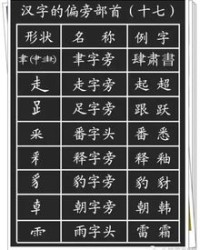 汉字的偏旁部首（十七）
形状 名称 例字
肀（中：⺻） 聿字旁 肆肃書
走 走字旁 起超
𧾷 足字旁 跟跃
釆 番字头 番悉
釆 释字旁 释释
豸 豹字旁 豹豺
𠦝 朝字旁 朝韩
⻗ 雨字头 雷霜